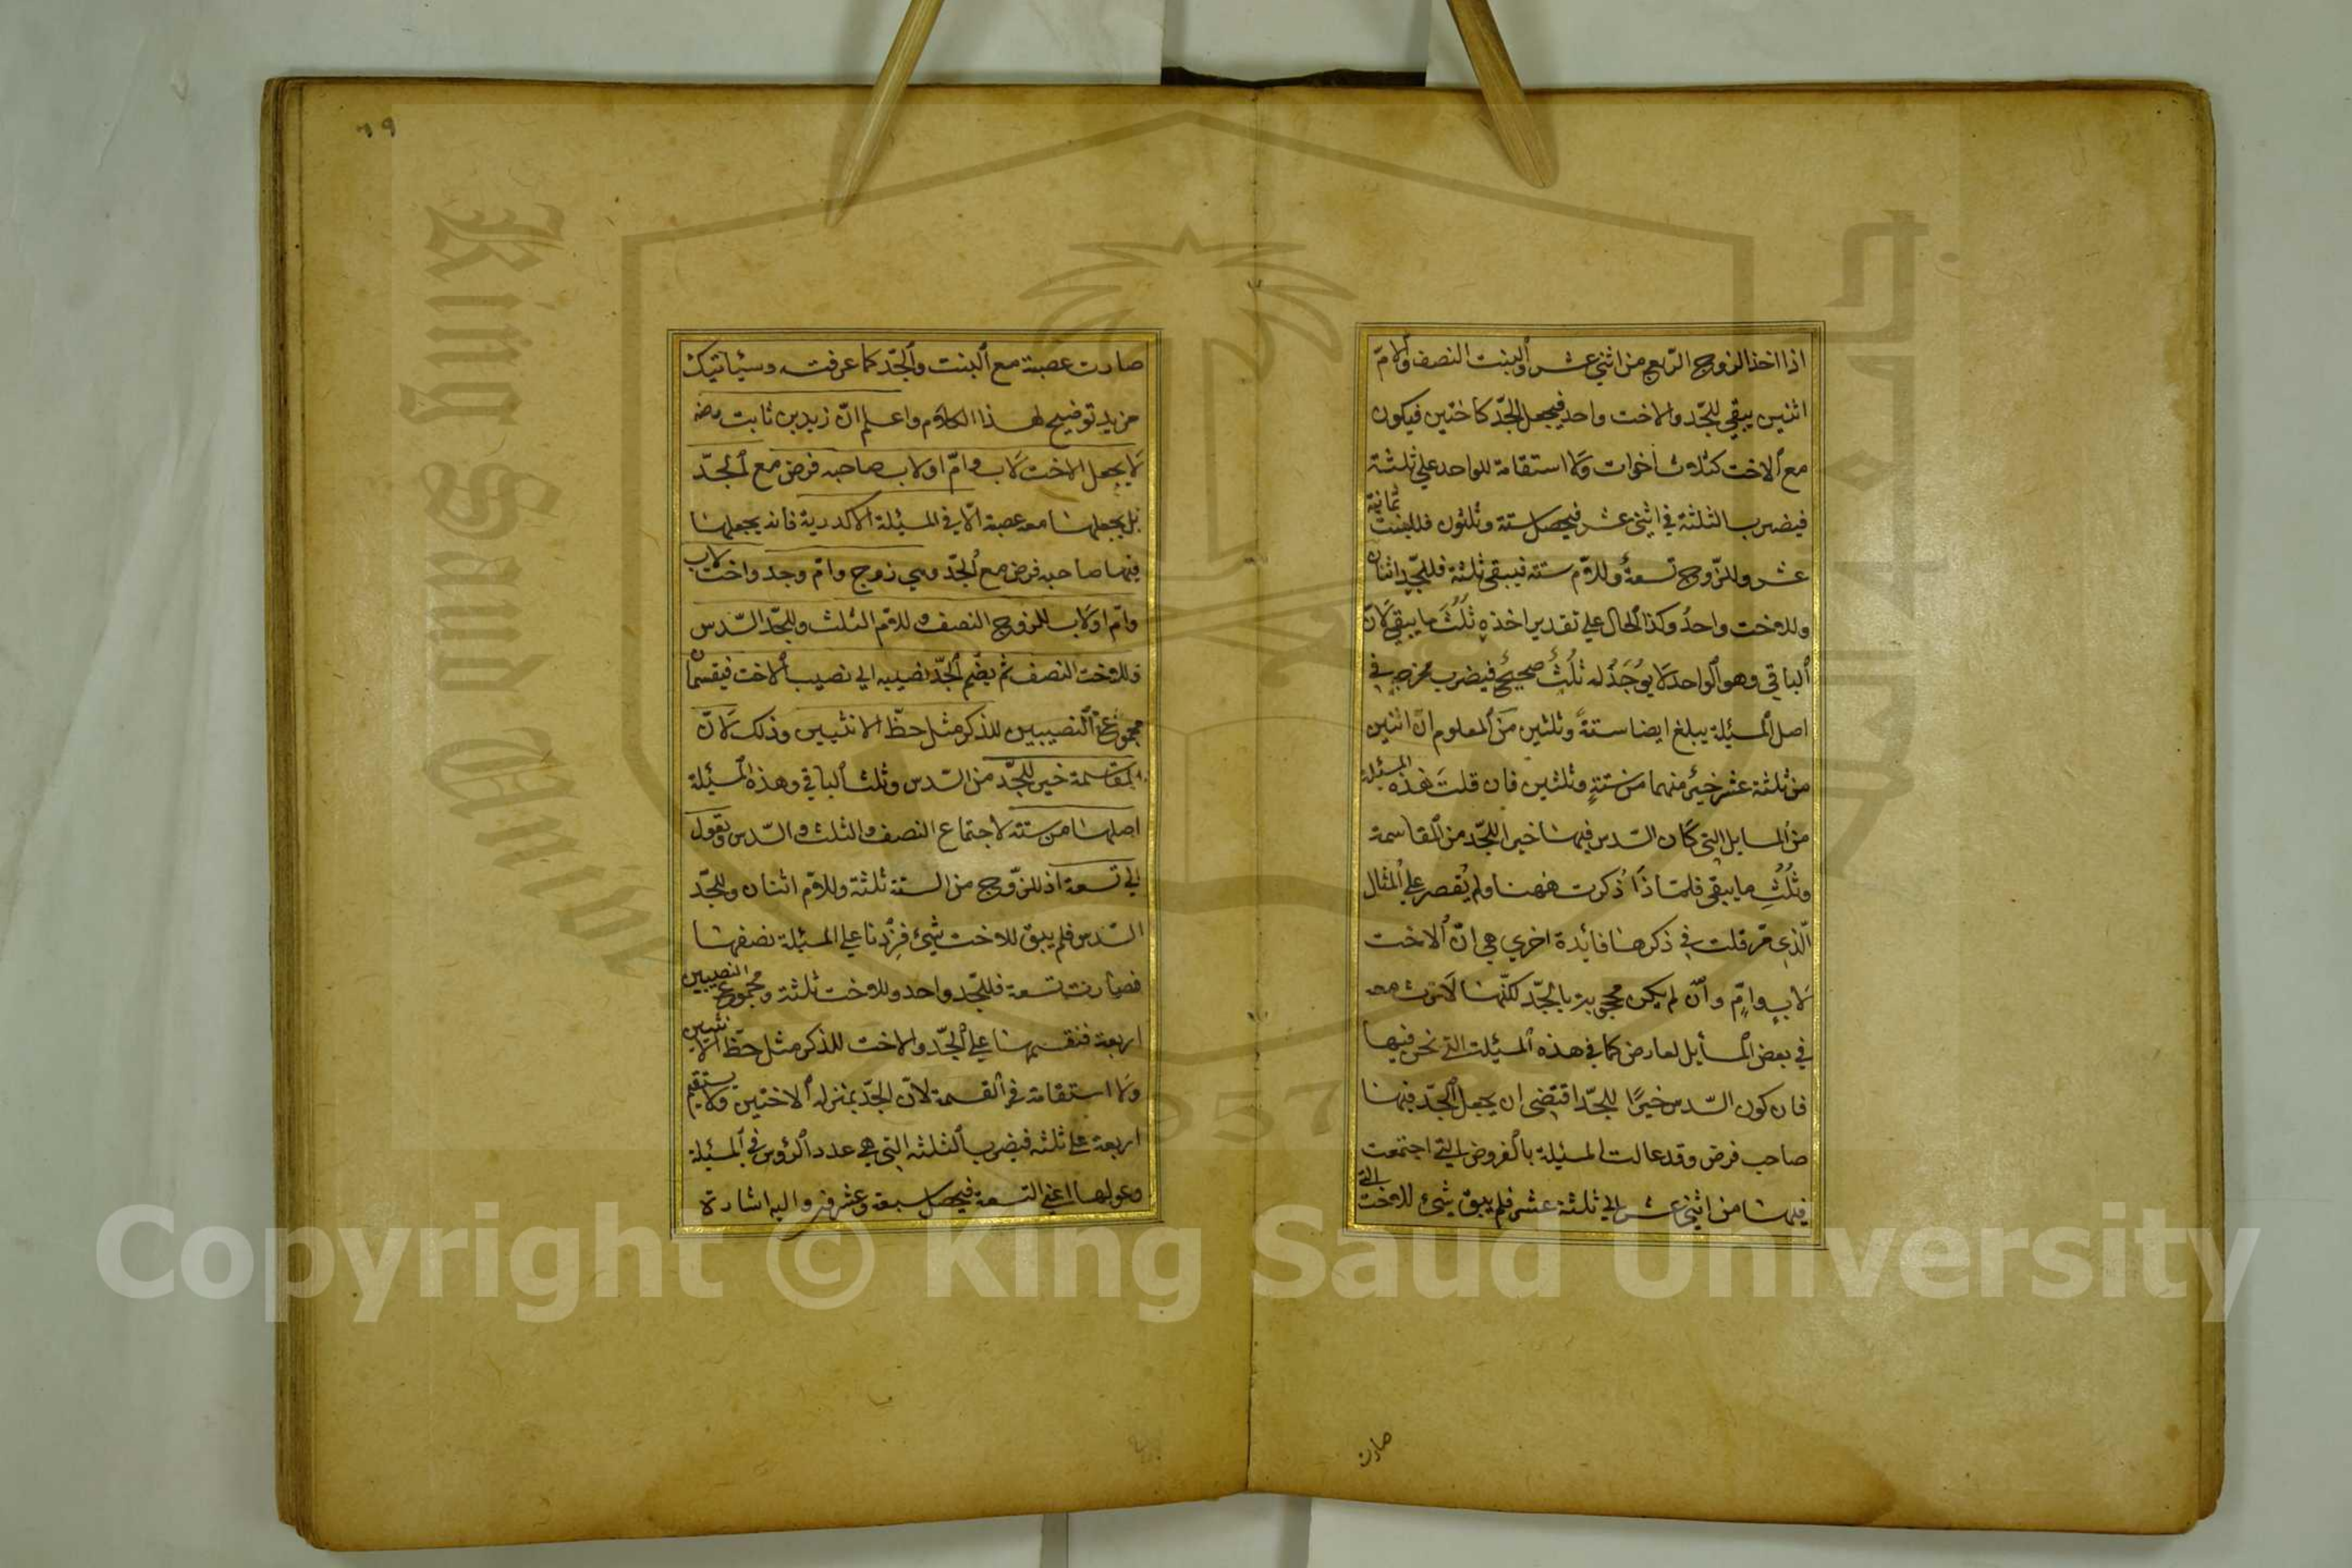 اذا اخذ الزوج الربع من اثنى عشر والبنت النصف والامّ
اثنين يبقى للجدّ والاخت واحد فيجعل الجدّ كاختين فيكون
مع الاخت كثلاث اخوات ولا استقامة للواحد على ثلثة
فيضرب الثلثة في اثنى عشر فيحصل ستة وثلثون فللبنت ثمانية
عشر وللزّوج تسعةٌ وللامّ ستة فيبقى ثلثة فللجدّ اثنان
وللاخت واحدٌ وكذا الحال على تقدير اخذه ثُلُثَ ما يبقى لانّ
الباقي وهو الواحد لا يُوجَدُ له ثُلُثٌ صحيحٌ فيضرب مخرجه في
اصل المسئلة يبلغ ايضا ستةً وثلثين من المعلوم انّ اثنين
من ثلثة عشر خيرٌ منهما من ستةٍ وثلثين فان قلت هذه المسئلة
من المسايل التى كان السّدس فيها خيرا للجدّ من المقاسمة
وثُلُثِ ما يبقى فلماذا ذُكرت ههنا ولم يُقصر على المثال
الّذى مرّ قلت في ذكرها فائدة اخرى هى انّ الاخت
لابٍ وامٍّ وان لم يكن محجوبة بالجدّ لكنّها لا ترث معه
في بعض المسأيل لعارض كما في هذه المسئلت التى نحن فيها
فان كون السّدس خيرًا للجدّ اقتضى ان يجعل الجدّ فيها
صاحب فرض وقد عالت المسئلة بالفروض التى اجتمعت
فيها من اثنى عشر الى ثلثة عشر فلم يبق شئ للاخت التى
صارت
٦٩
صارت عصبة مع البنت والجدّ كما عرفته وسيأتيك
مزيد توضيح لهذا الكلام واعلم انّ زيد بن ثابت رضه
لا يجعل الاخت لاب وامّ او لاب صاحبه فرض مع الجدّ
بل يجعلها معه عصبة الّا في المسئلة الاكدرية فانه يجعلها
فيها صاحبه فرض مع الجدّ وهى زوج وامّ وجد واخت لاب
وامّ او لاب للزوج النصف وللامّ الثلث وللجدّ السّدس
وللاخت النصف ثم يضّم الجدّ نصيبه الى نصيب الاخت فيقسمان
مجموع النصيبين للذكر مثل حظّ الانثيين وذلك لانّ
المقاسمة خير للجدّ من السّدس وثلث الباقي وهذه المسئلة
اصلها من ستة لاجتماع النصف والثلث والسّدس وتعول
الى تسعة اذ للزّوج من الستة ثلثة وللامّ اثنان وللجدّ
السّدس فلم يبق للاخت شئ فزدنا على المسئلة نصفها
فصارت تسعة فللجّد واحد وللاخت ثلثة ومجموع النصيبين
اربعة فنقسمها على الجدّ والاخت للذكر مثل حظّ الانثيين
ولا استقامة في القسمة لانّ الجدّ بمنزلة الاختين ولا يستقيم
اربعة على ثلثه فيضرب الثلثه التى هى عدد الرؤس في المسئلة
وعولها اعنى التسعة فيحصل سبعة وعشرون واليه اشارة
King Saud
1957
Copyright © King Saud University